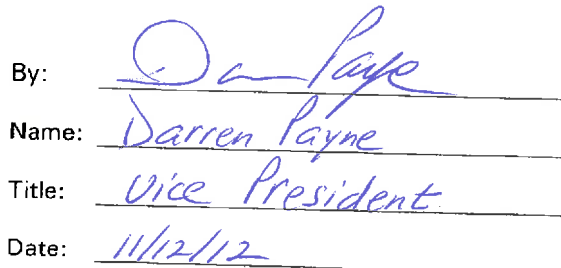 By:
Name: Darren Payne
Title: Vice President
Date: 11/12/12